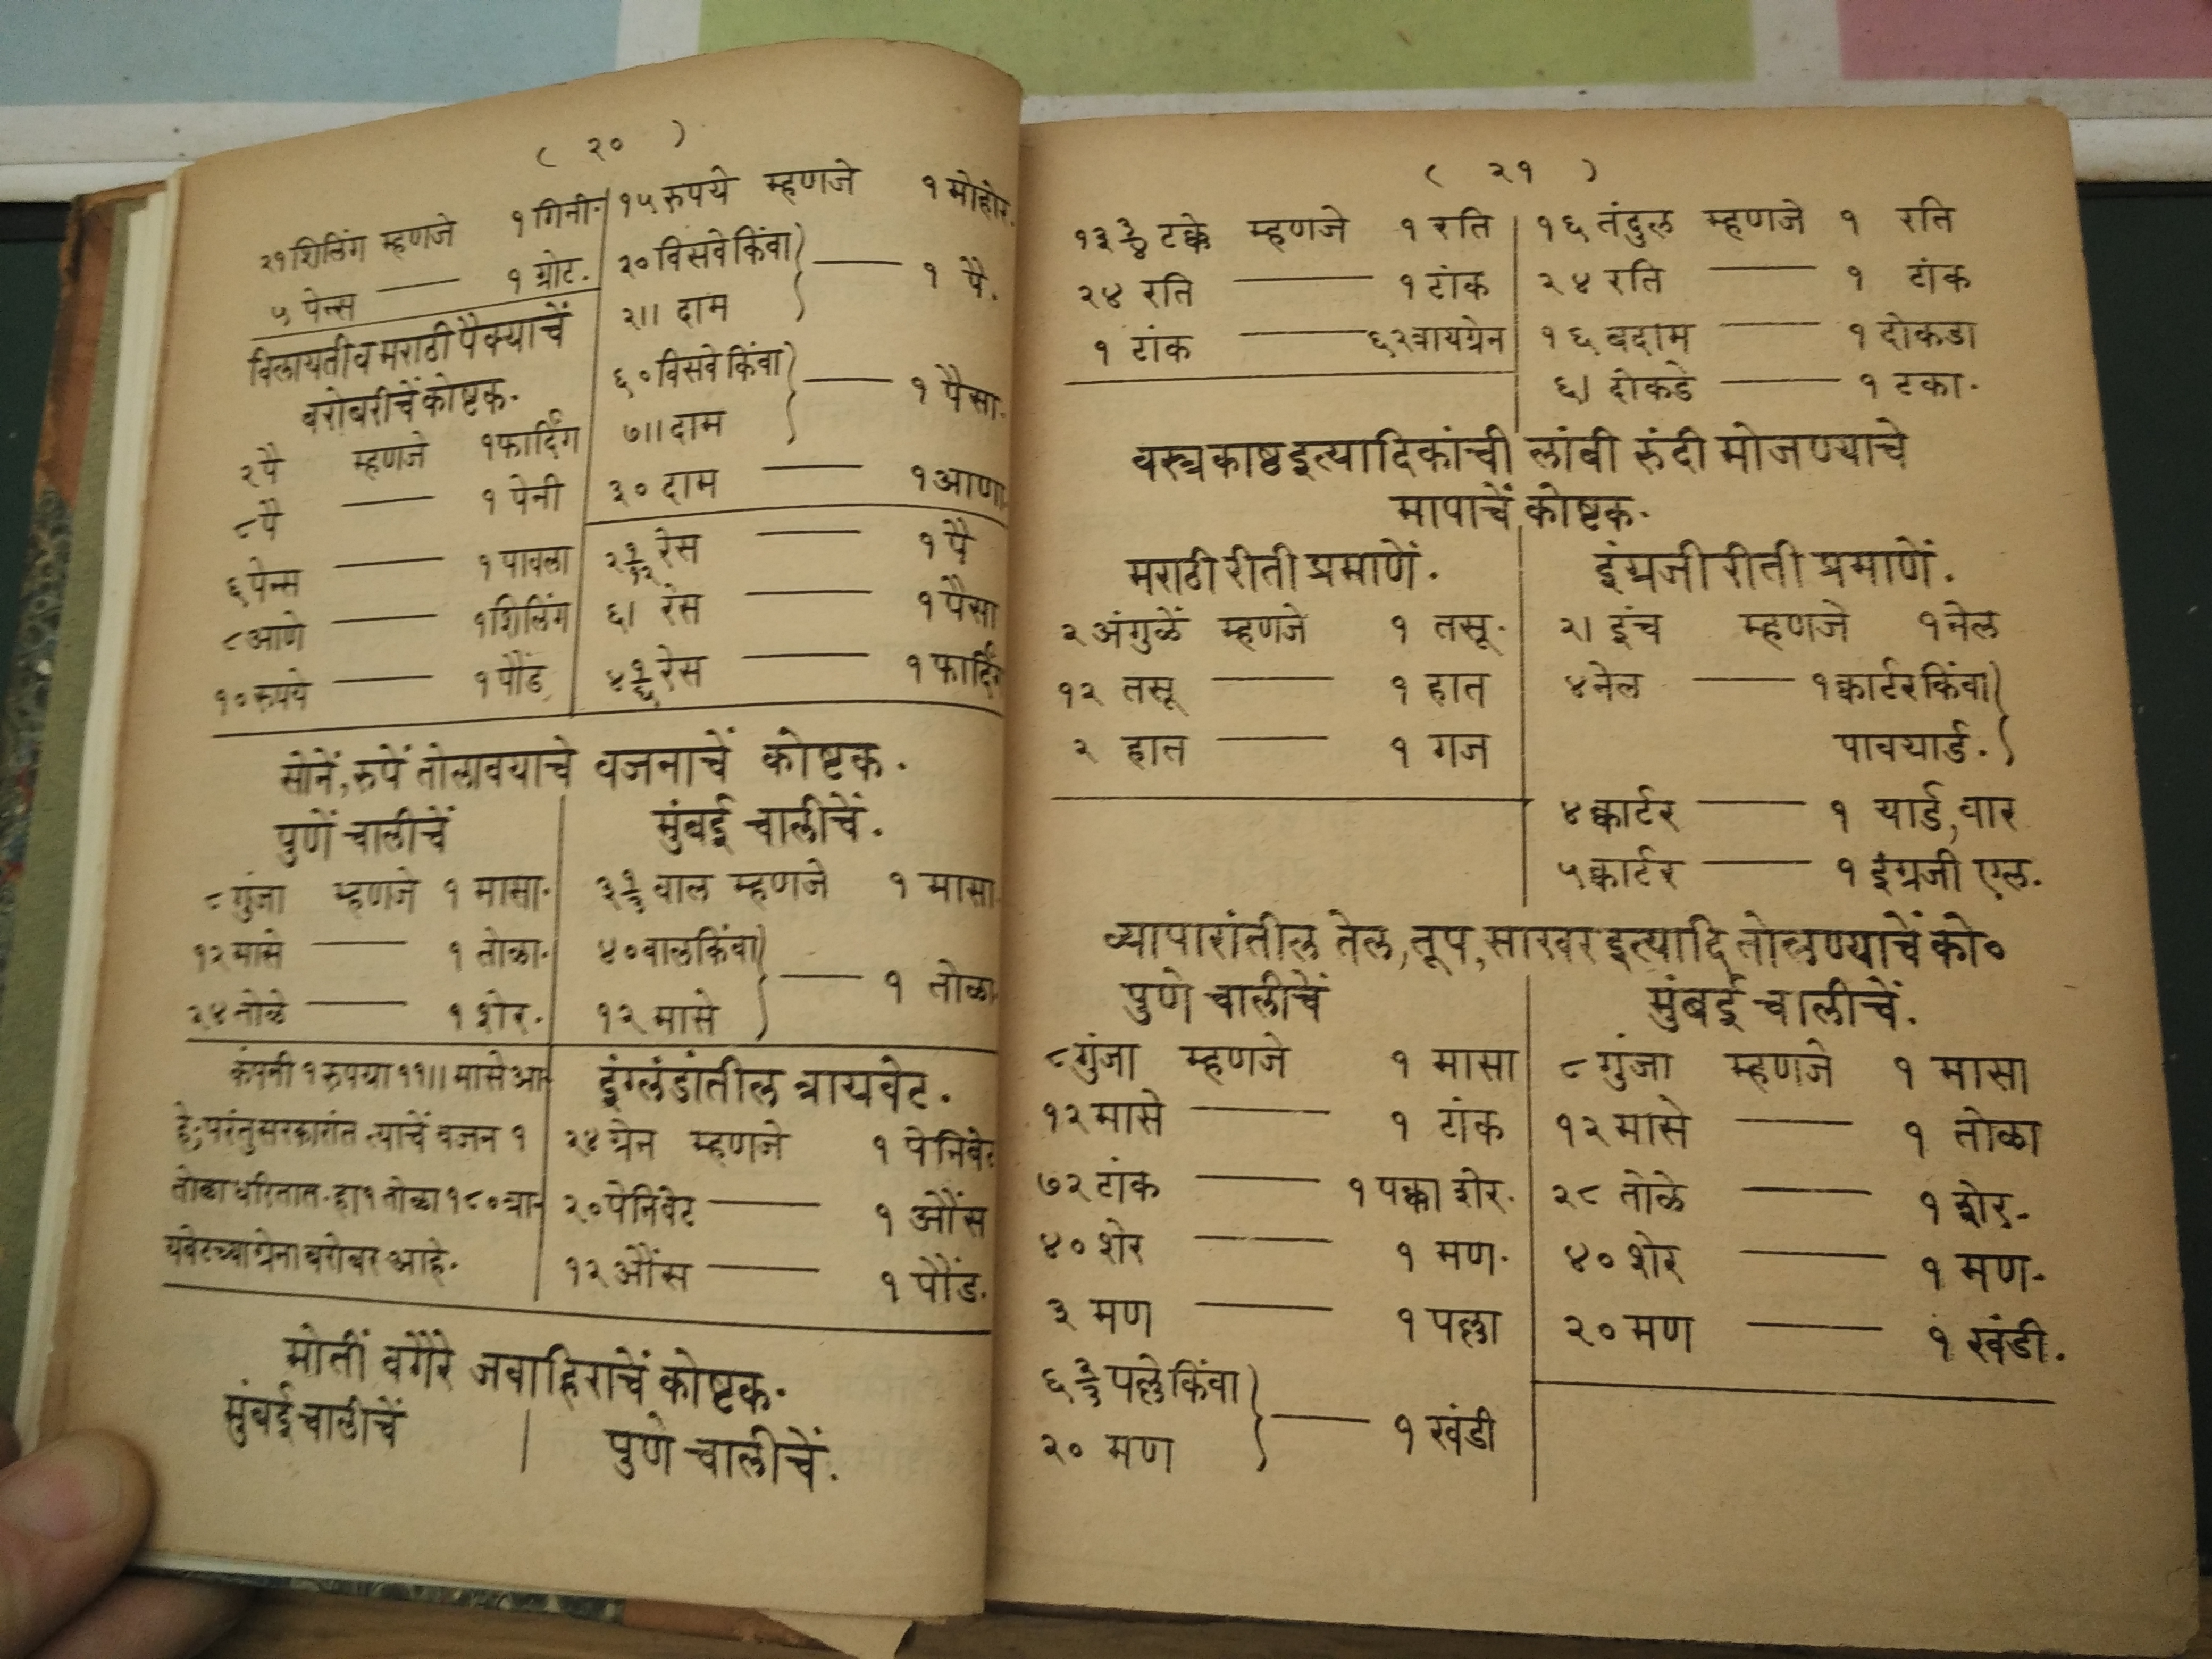 ( २० )
२१ शिलिंग म्हणजे १ गिनी.
५ पेन्स —— १ ग्रोट.
विलायती व मराठी पैक्याचें
बरोबरीचें कोष्टक.
२ पै म्हणजे १ फार्दिंग
८ पै —— १ पेनी
६ पेन्स —— १ पावला
८ आणे —— १ शिलिंग
१० रुपये —— १ पौंड
१५ रुपये म्हणजे १ मोहोर.
२० विसवे किंवा
२।। दाम } —— १ पै.
६० विसवे किंवा
७।। दाम } —— १ पैसा.
३० दाम —— १ आणा
२ १/१२ रेस —— १ पै
६। रेस —— १ पैसा
४ १/६ रेस —— १ फार्दिंग
सोनें, रुपें तोलावयाचे वजनाचें कोष्टक.
पुणें चालीचें
८ गुंजा म्हणजे १ मासा.
१२ मासे —— १ तोळा.
२४ तोळे —— १ शेर.
कंपनी १ रुपया ११।। मासे आ-
हे; परंतु सरकारांत त्याचें वजन १
तोळा धरितात. हा १ तोळा १८० त्रा-
यवेटच्या ग्रेना बरोबर आहे.
मुंबई चालीचें.
३ १/३ वाल म्हणजे १ मासा.
४० वाल किंवा
१२ मासे } —— १ तोळा
इंग्लंडांतील त्रायवेट.
२४ ग्रेन म्हणजे १ पेनिवेट
२० पेनिवेट —— १ औंस
१२ औंस —— १ पौंड.
मोतीं वगैरे जवाहिराचें कोष्टक.
मुंबई चालीचें | पुणे चालीचें.
( २१ )
१३ ३/४ टक्के म्हणजे १ रति
२४ रति —— १ टांक
१ टांक —— ६२ त्रायग्रेन
१६ तंदुल म्हणजे १ रति
२४ रति —— १ टांक
१६ बदाम —— १ दोकडा
६। दोकडे —— १ टका.
वस्त्र काष्ठ इत्यादिकांची लांबी रुंदी मोजण्याचे
मापाचें कोष्टक.
मराठी रीती प्रमाणें.
२ अंगुळें म्हणजे १ तसू.
१२ तसू —— १ हात
२ हात —— १ गज
इंग्रजी रीती प्रमाणें.
२। इंच म्हणजे १ नेल
४ नेल —— १ क्वार्टर किंवा
पावयार्ड. }
४ क्वार्टर —— १ यार्ड, वार
५ क्वार्टर —— १ इंग्रजी एल.
व्यापारांतील तेल, तूप, साखर इत्यादि तोलण्याचें को०
पुणे चालीचें
८ गुंजा म्हणजे १ मासा
१२ मासे —— १ टांक
७२ टांक —— १ पक्का शेर.
४० शेर —— १ मण.
३ मण —— १ पल्ला
६ २/३ पल्ले किंवा
२० मण } —— १ खंडी
मुंबई चालीचें.
८ गुंजा म्हणजे १ मासा
१२ मासे —— १ तोळा
२८ तोळे —— १ शेर.
४० शेर —— १ मण.
२० मण —— १ खंडी.